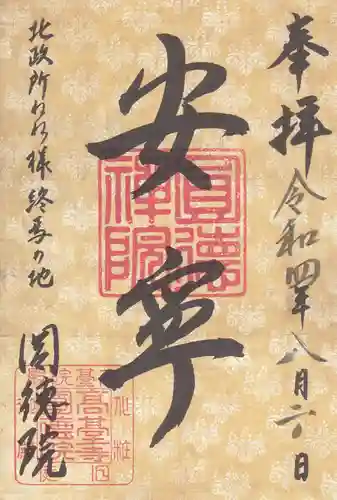 奉拝
令和四年八月六日
安寧
北政所ねね様終焉の地
圓徳院
圓德禅院